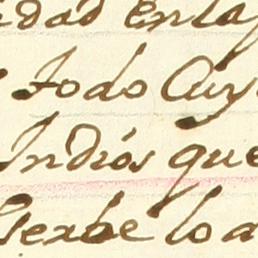 idad en la
todo Cuy
Indios que
Gerbe lo a